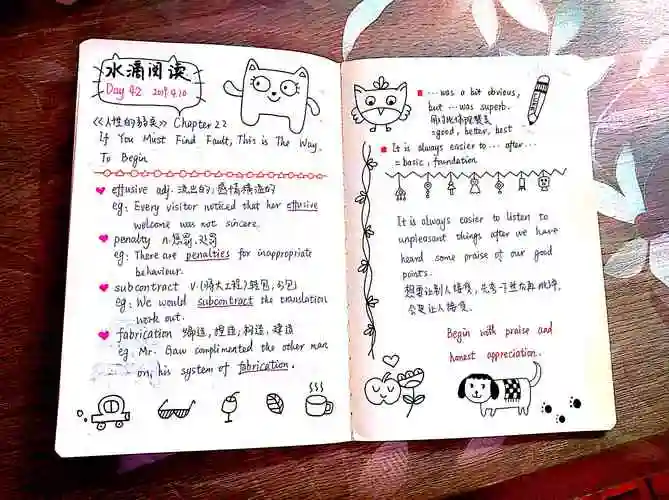 水滴阅读
Day 42 2019.4.10
《人性的弱点》 Chapter 22
If You Must Find Fault, This is The Way
To Begin
effusive adj. 流出的；感情横溢的
eg: Every visitor noticed that her effusive
welcome was not sincere.
penalty n. 惩罚，处罚
eg: There are penalties for inappropriate
behaviour.
subcontract v. (将大工程)转包，分包
eg: We would subcontract the translation
work out.
fabrication 编造，捏造；制造，建造
eg Mr. Gaw complimented the other man
on his system of fabrication.
... was a bit obvious,
but ... was superb.
=good, better, best
It is always easier to ... after ...
= basic, foundation
It is always easier to listen to
unpleasant things after we have
heard some praise of our good
points.
想要让别人接受，先夸一下然后再批评，
会更让人接受。
Begin with praise and
honest appreciation.